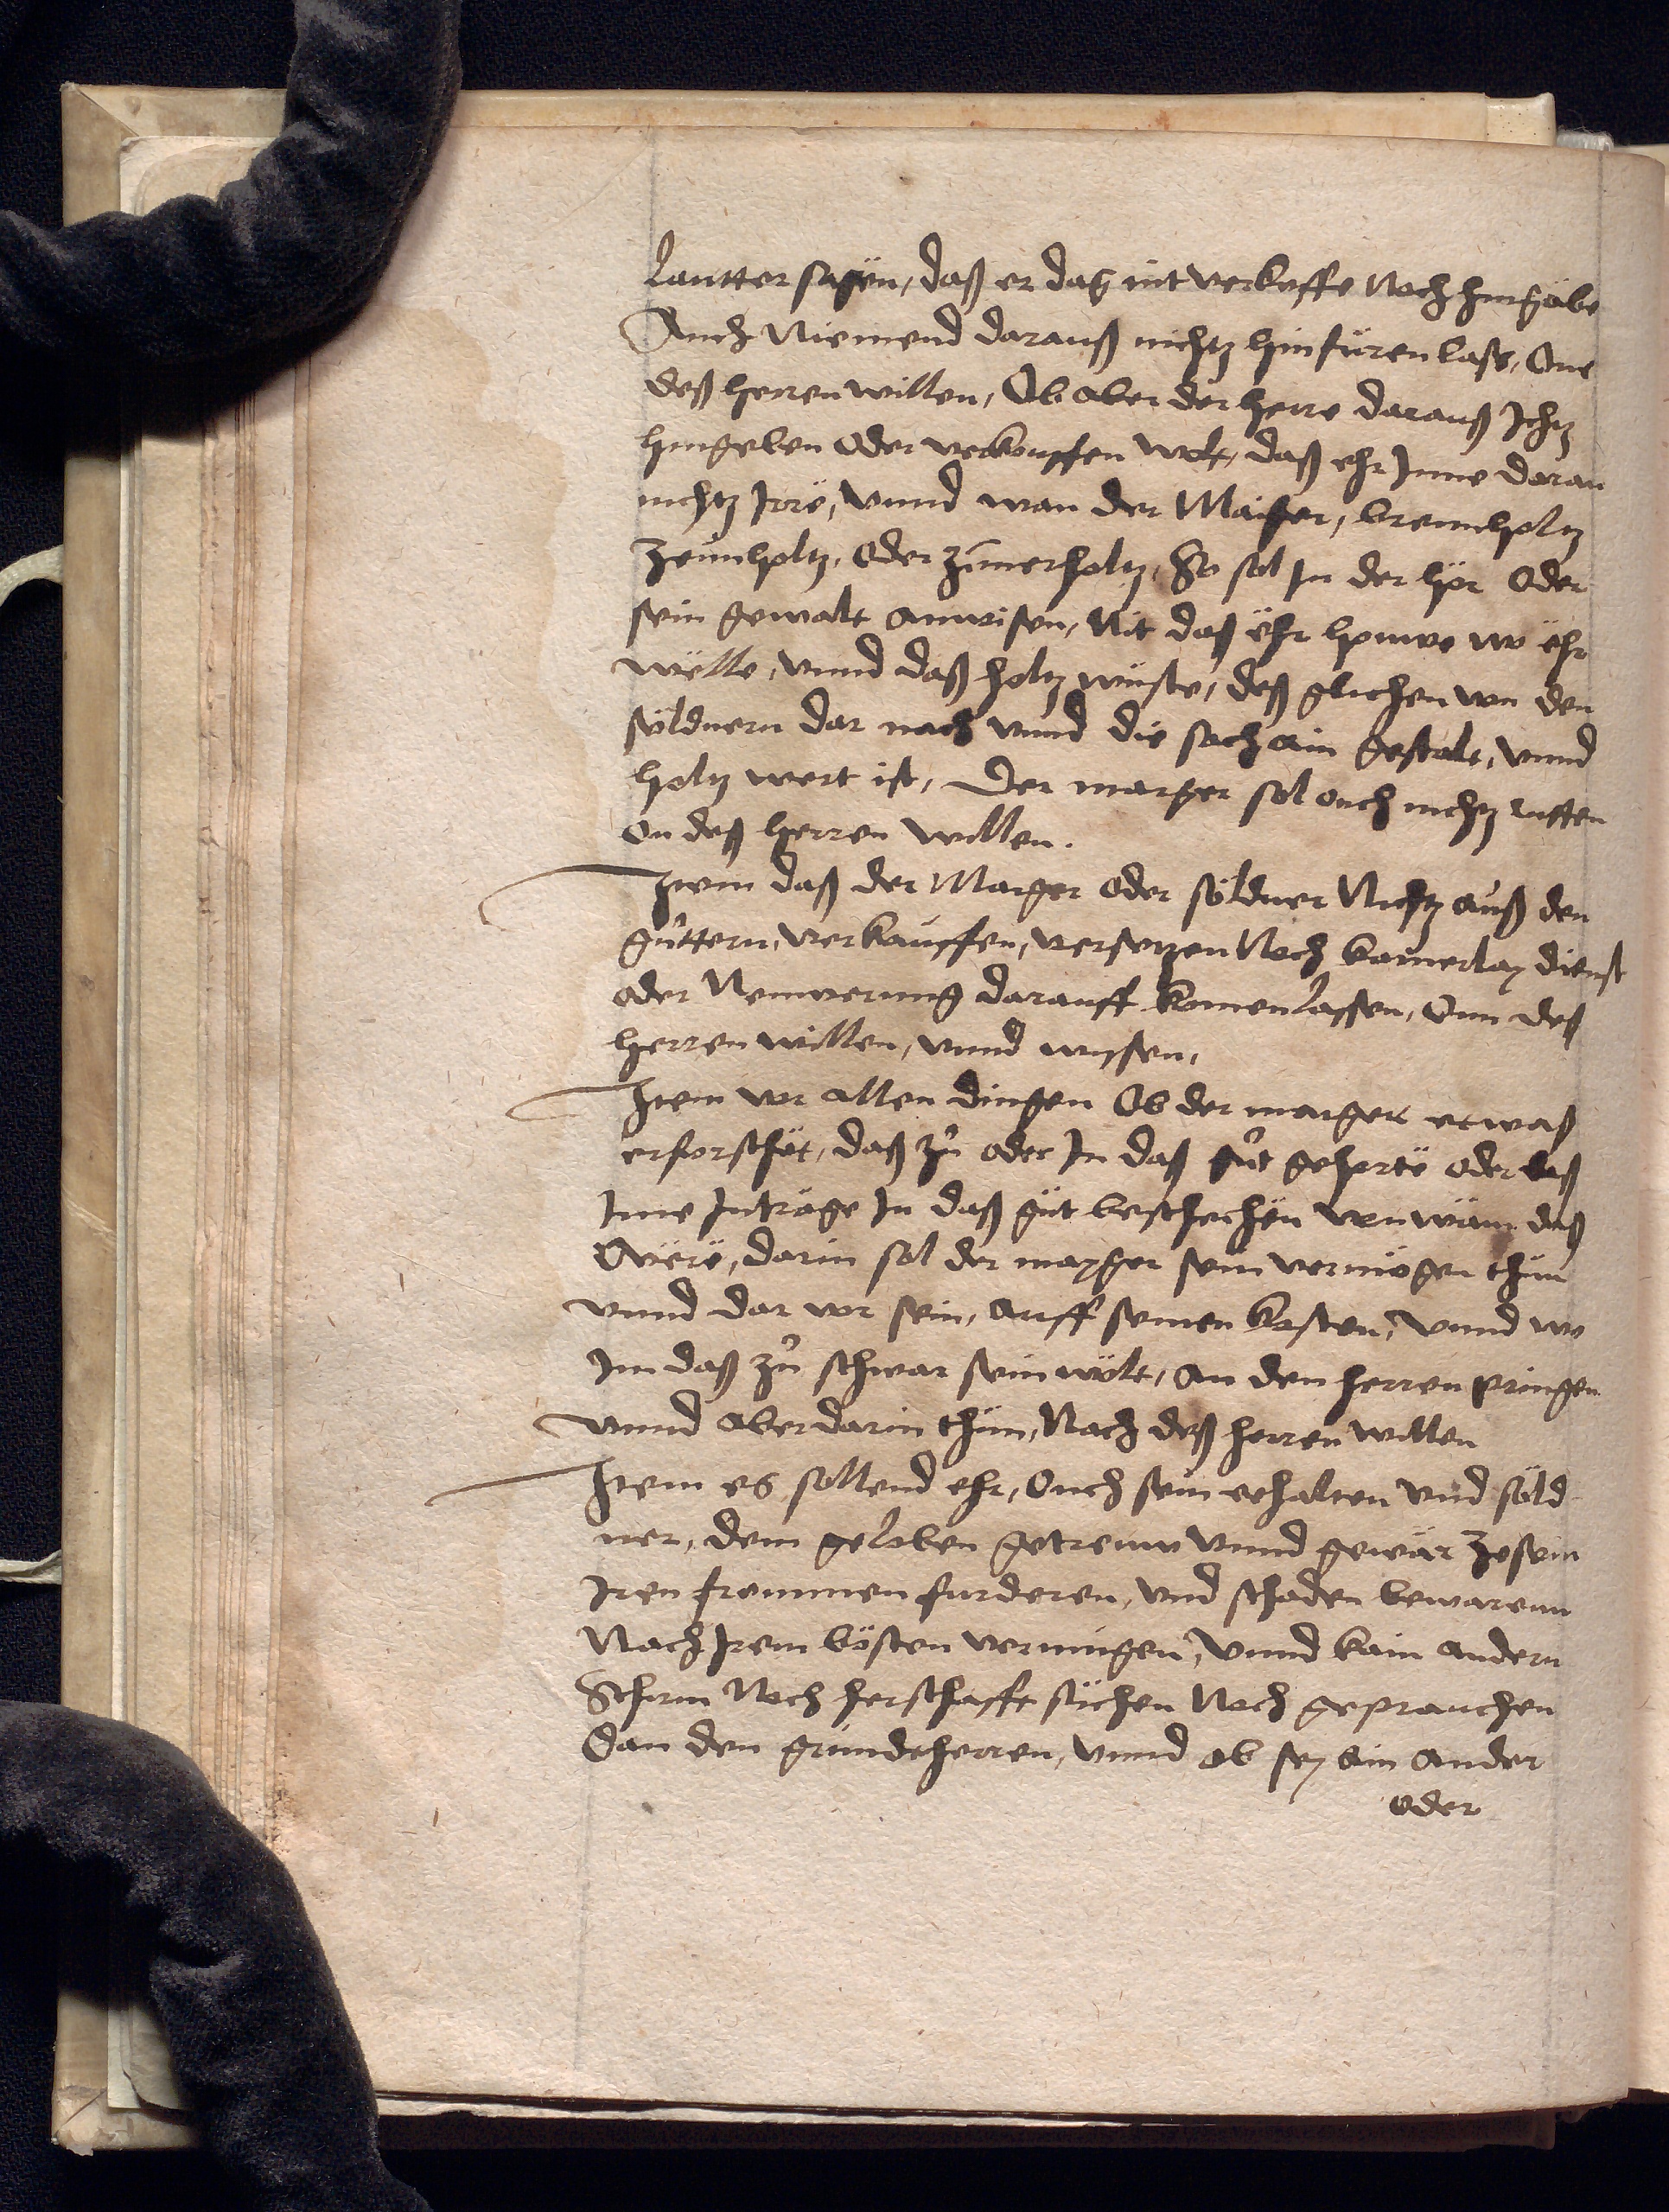 Lautter sagen, daß er daß nit verkoffe Noch hingäbe
Auch Niemend darauß nichtz hinfüren lass, One
deß herren willen, Ob aber der herre darauß Ichtz
hingeben oder verkouffen wolt, daß ehr Jnne daran
nichtz Irre, Vnnd wan der Maiger, brennholtz
Zeunholtz, oder Zimerholtz, So sol In der her oder
sein gewalt anwisen, Nit daß ehr houwe wo ehr
wëlle, vnnd daß holtz wüste, deß glichen von den
söldnern dar nach vnnd die sach ain gestalt, vnnd
holtz wert ist, Der mayger sol ouch nichtz
on deß herren willen.
Item daß der Mayger oder söldner Nichtz auß den
güttern, verkauffen, versetzen Noch kainerlay dienst
oder Neuwerung darauff komen lassen, Onn deß
herren willen, vnnd wyssen,
Item vor allen dingen Ob der mayger etwaß
erforschet, daß zů oder In daß gůt gehorte oder daß
Inne Inträge In daß gůt beschechen von wäm daß
Wäre, darin sol der mayger sein vermögen thůn
vnnd dar vor sein, auff seinen kosten, Vnnd wo
Im daß zů schwar sein wölt, an den herren pringen
vnnd aber darin thůn, Nach deß herren willen
Item es sollend ehr, Ouch sein eehalten vnd söld
ner, dem geloben getreuw vnnd gewär Zesein
Iren frommen furderen, vnd schaden bewarenn
Nach Irem bösten vermügen, Vnnd kain andern
Schirm Noch herschafft süchen Noch geprauchen
Dan den grundtherren, vnnd ob sy ain ander
oder